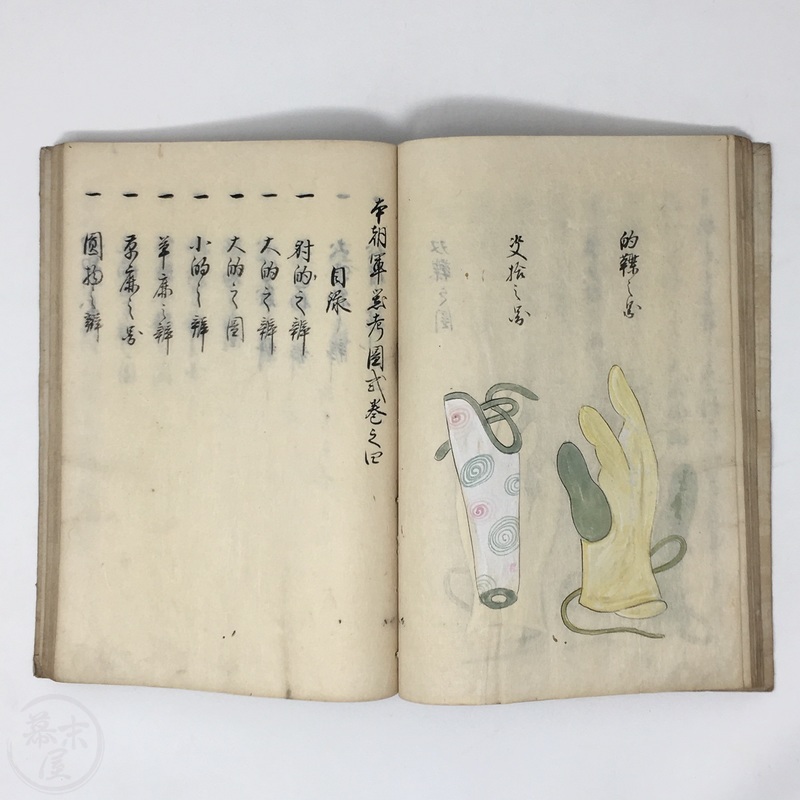 的鞢之図
捨之図
本朝軍器考図式巻之四
目録
一 射的之辨
一 大的之辨
一 大的之図
一 小的之辨
一 草鹿之辨
一 草鹿之図
一 圓物之辨
幕末屋